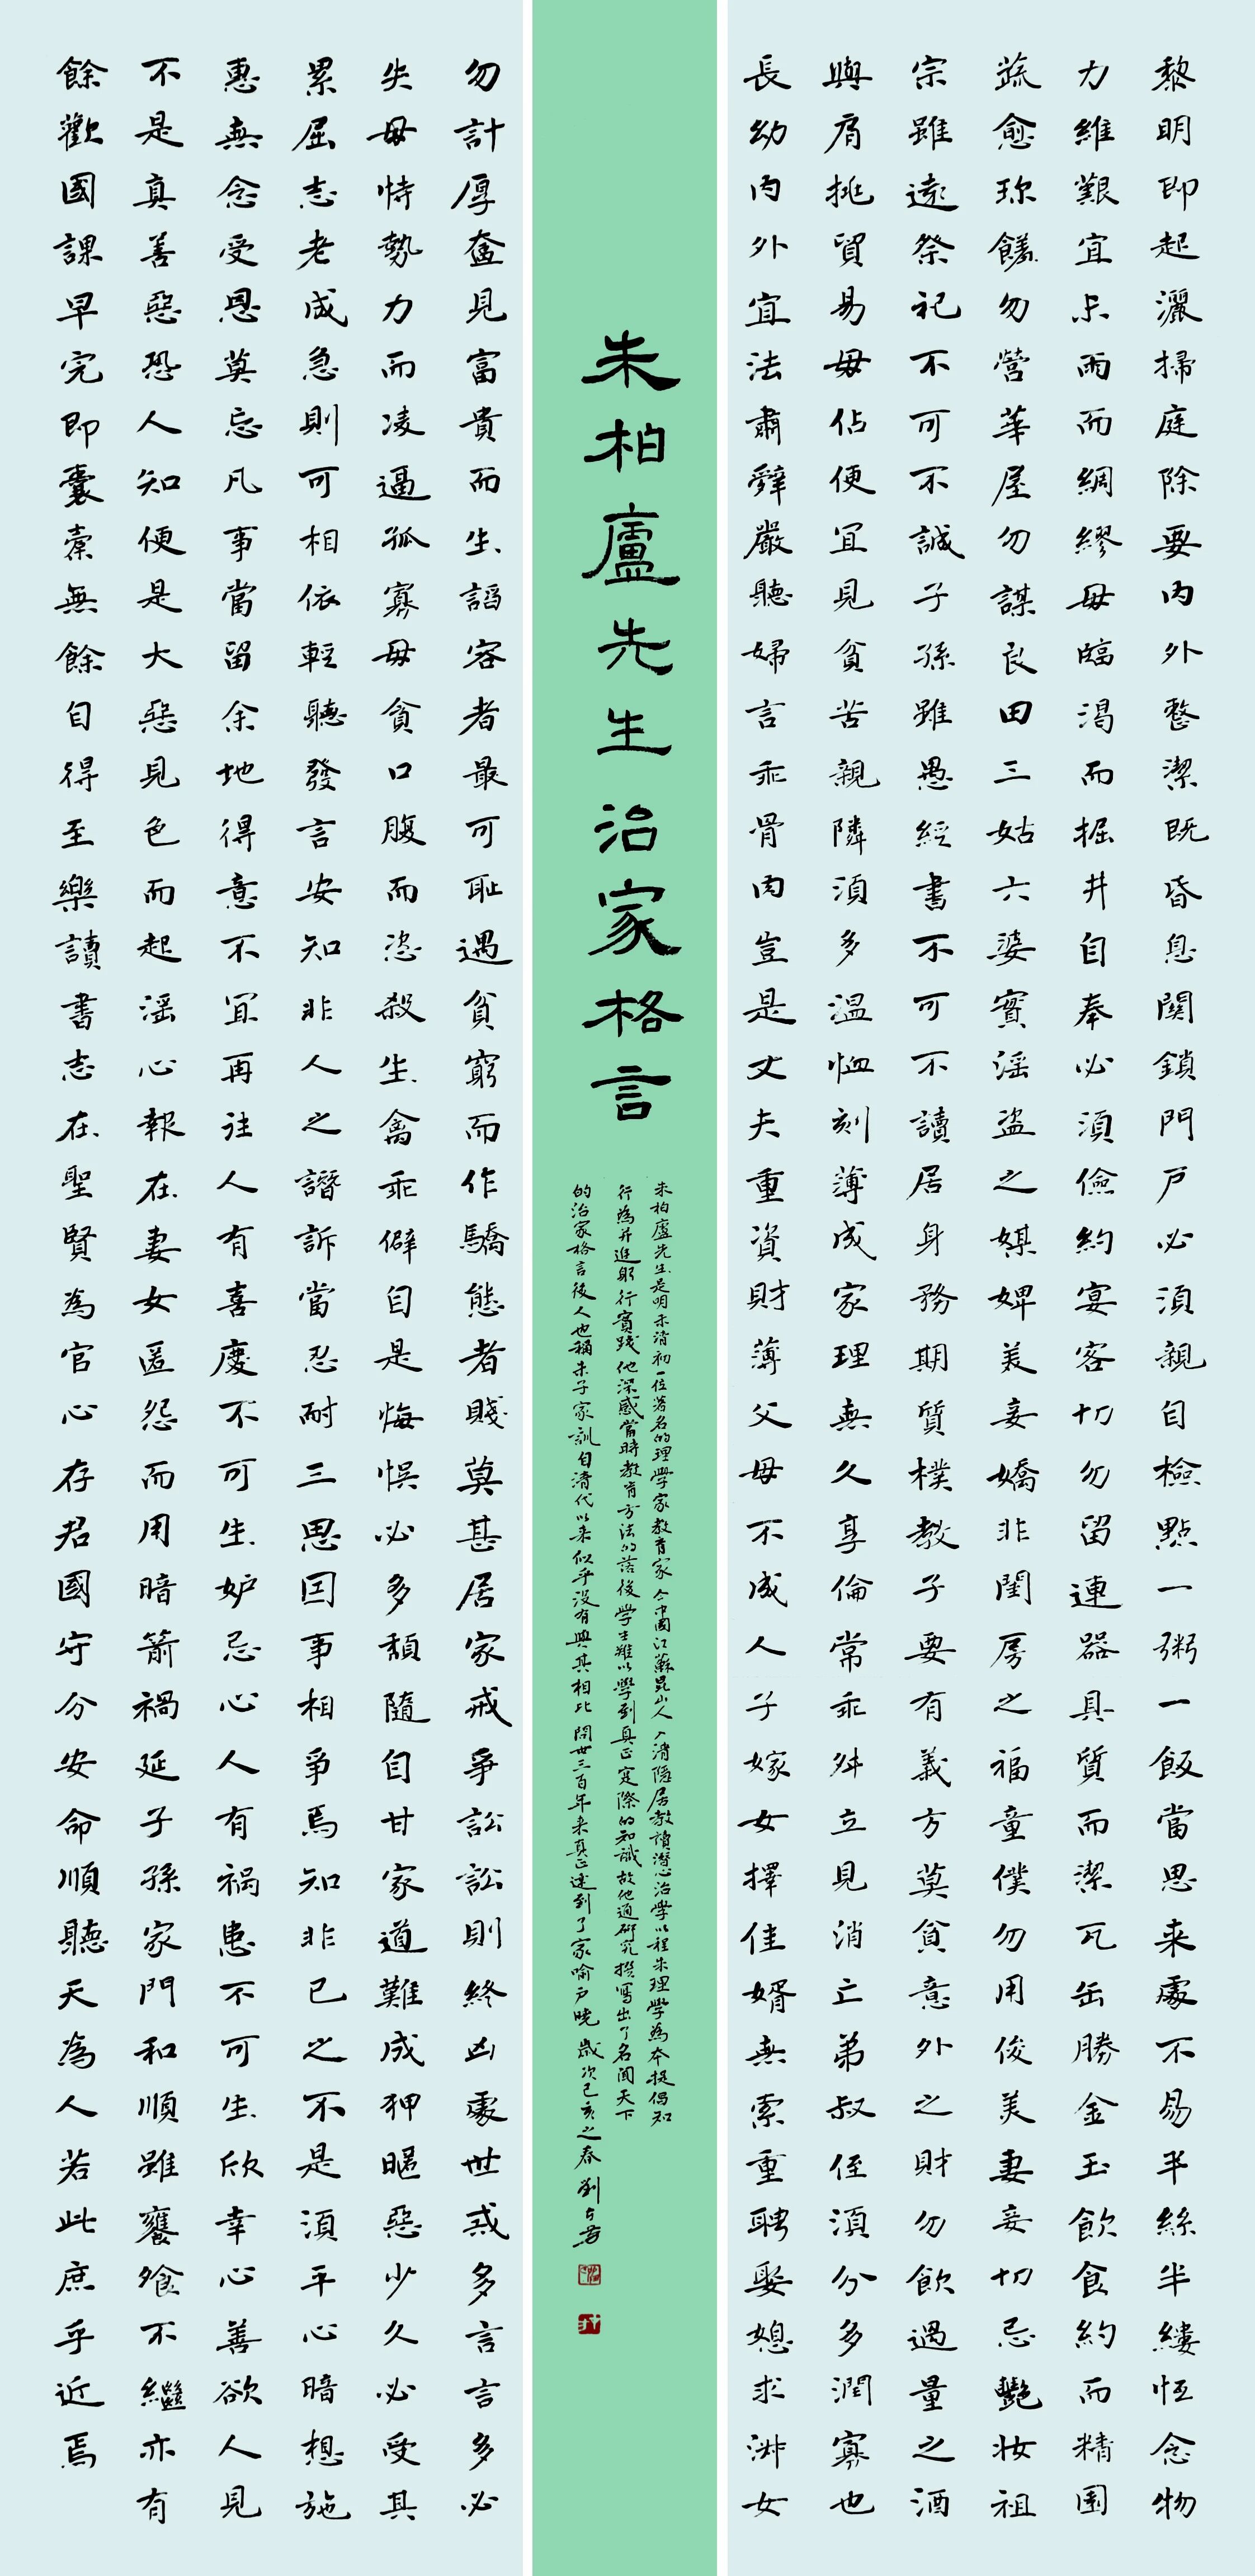 黎明即起灑掃庭除要內外整潔既昏息關鎖門戶必須親自檢點一粥一飯當思来處不易半絲半縷恒念物
力維艱宜未雨而綢繆毋臨渴而掘井自奉必須儉約宴客切勿留連器具質而潔瓦缶勝金玉飲食約而精園
蔬愈珍饈勿營華屋勿謀良田三姑六婆實淫盜之媒婢美妾嬌非閨房之福童僕勿用俊美妻妾切忌艷妝祖
宗雖遠祭祀不可不誠子孫雖愚經書不可不讀居身務期質樸教子要有義方莫貪意外之財勿飲過量之酒
與肩挑貿易毋佔便宜見貧苦親隣須多溫恤刻薄成家理無久享倫常乖舛立見消亡弟叔侄須分多潤寡也
長幼內外宜法肅辭嚴聽婦言乖骨肉豈是丈夫重資財薄父母不成人子嫁女擇佳婿無索重聘娶媳求淑女
朱柏廬先生治家格言
朱柏廬先生是明末清初一位著名的理學家教育家今中國江蘇昆山人入清隱居教讀潛心治學以程朱理學為本提倡知
行為并進躬行實踐他深感當時教育方法的落後學生難以學到真正寔際的知識故他通研究撰寫出了名聞天下
的治家格言後人也稱朱子家訓自清代以来似乎没有與其相比問世三百年来真正達到了家喻户曉歲次己亥之春劉
勿計厚奩見富貴而生諂容者最可恥遇貧窮而作驕態者賤莫甚居家戒爭訟訟則終凶處世戒多言言多必
失毋恃勢力而凌逼孤寡毋貪口腹而恣殺生禽乖僻自是悔悮必多頹隨自甘家道難成狎暱惡少久必受其
累屈志老成急則可相依輕聽發言安知非人之譖訴當忍耐三思因事相爭焉知非己之不是須平心暗想施
惠無念受恩莫忘凡事當留余地得意不宜再往人有喜慶不可生妒忌心人有禍患不可生欣幸心善欲人見
不是真善惡恐人知便是大惡見色而起淫心報在妻女匿怨而用暗箭禍延子孫家門和順雖饔飧不繼亦有
餘歡國課早完即囊橐無餘自得至樂讀書志在聖賢為官心存君國守分安命順聽天為人若此庶乎近焉